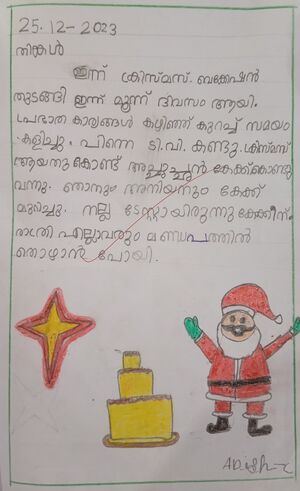 25-12-2023
തിങ്കൾ
ഇന്ന് ക്രിസ്മസ് ബക്കേഷൻ
തുടങ്ങി ഇന്ന് മൂന്ന് ദിവസം ആയി.
പ്രഭാത കാര്യങ്ങൾ കഴിഞ്ഞ് കുറച്ച് സമയം
കളിച്ചു. പിന്നെ ടി.വി. കണ്ടു. ക്രിസ്മസ്
ആയതുകൊണ്ട് അച്ചച്ചൻ കേക്ക്കൊണ്ടു
വന്നു. ഞാനും അനിയനും കേക്ക്
മുറിച്ചു. നല്ല ടേസ്റ്റായിരുന്നു കേക്കിന്.
രാത്രി എല്ലാവരും മണ്ഡപത്തിൽ
തൊഴാൻ പോയി.